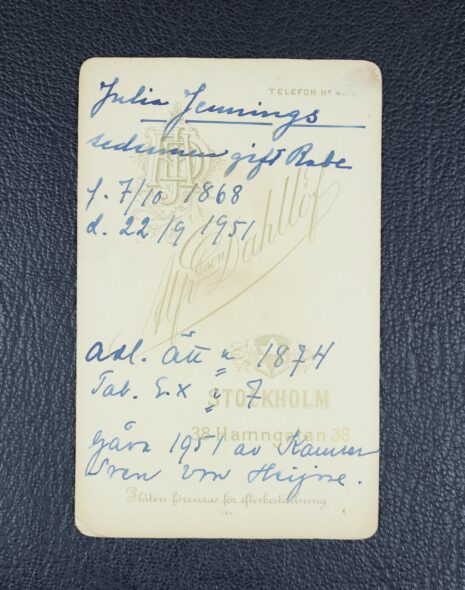 TELEFON Nº
Julia Jennings
sedermera gift Rabe
f. 7/10 1868
d. 22/9 1951
Dahllöf
adl. ätt " 1874
Tab. " 7
STOCKHOLM
38 Hamngatan 38
Gåva 1951 av Kamrer
Sven von Heijne.
Plåten förvaras för efterbeställning.